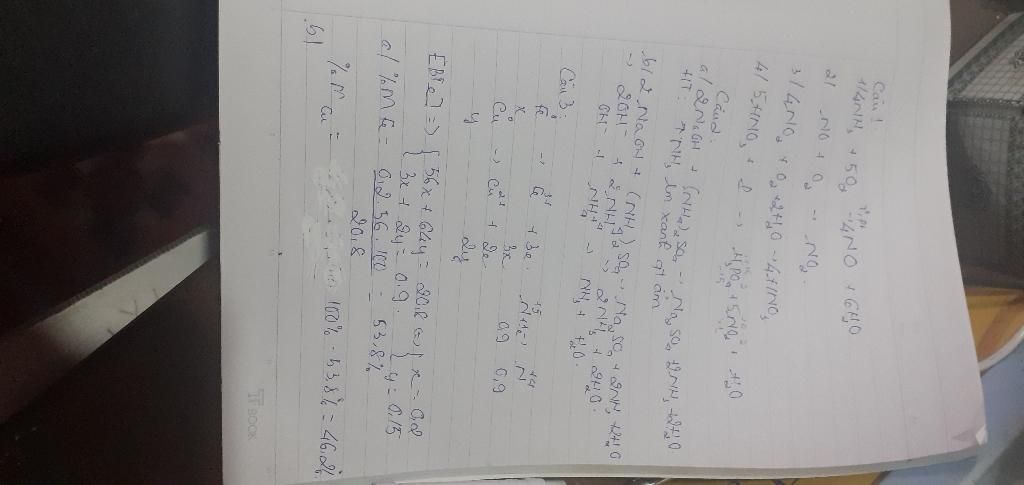 Câu 1:
1/ 4NH3 + 5O2 → 4NO + 6H2O
2/ NO + O2 → NO2
3/ 4NO2 + O2 + 2H2O → 4HNO3
4/ 5HNO3 + P → H3PO4 + 5NO2 + H2O
Câu 2:
a/ 2NaOH + (NH4)2SO4 → Na2SO4 + 2NH3 + 2H2O
HT: NH3 làm xanh quì ẩm
b/ 2NaOH + (NH4)2SO4 → Na2SO4 + 2NH3 + 2H2O
→ 2OH- + 2NH4+ → 2NH3 + 2H2O
OH- + NH4+ → NH3 + H2O.
Câu 3:
Fe → Fe3+ + 3e. N+5 + 1e → N+4
x 3x 0,9 0,9
Cu → Cu2+ + 2e
y 2y
[BTe] => { 56x + 64y = 20,8 3x + 2y = 0,9. <=> { x = 0,2 y = 0,15
a/ %m Fe = 0,2.56.100 / 20,8 = 53,8%
%m Cu = 100% - 53,8% = 46,2%.
b/
BOOK